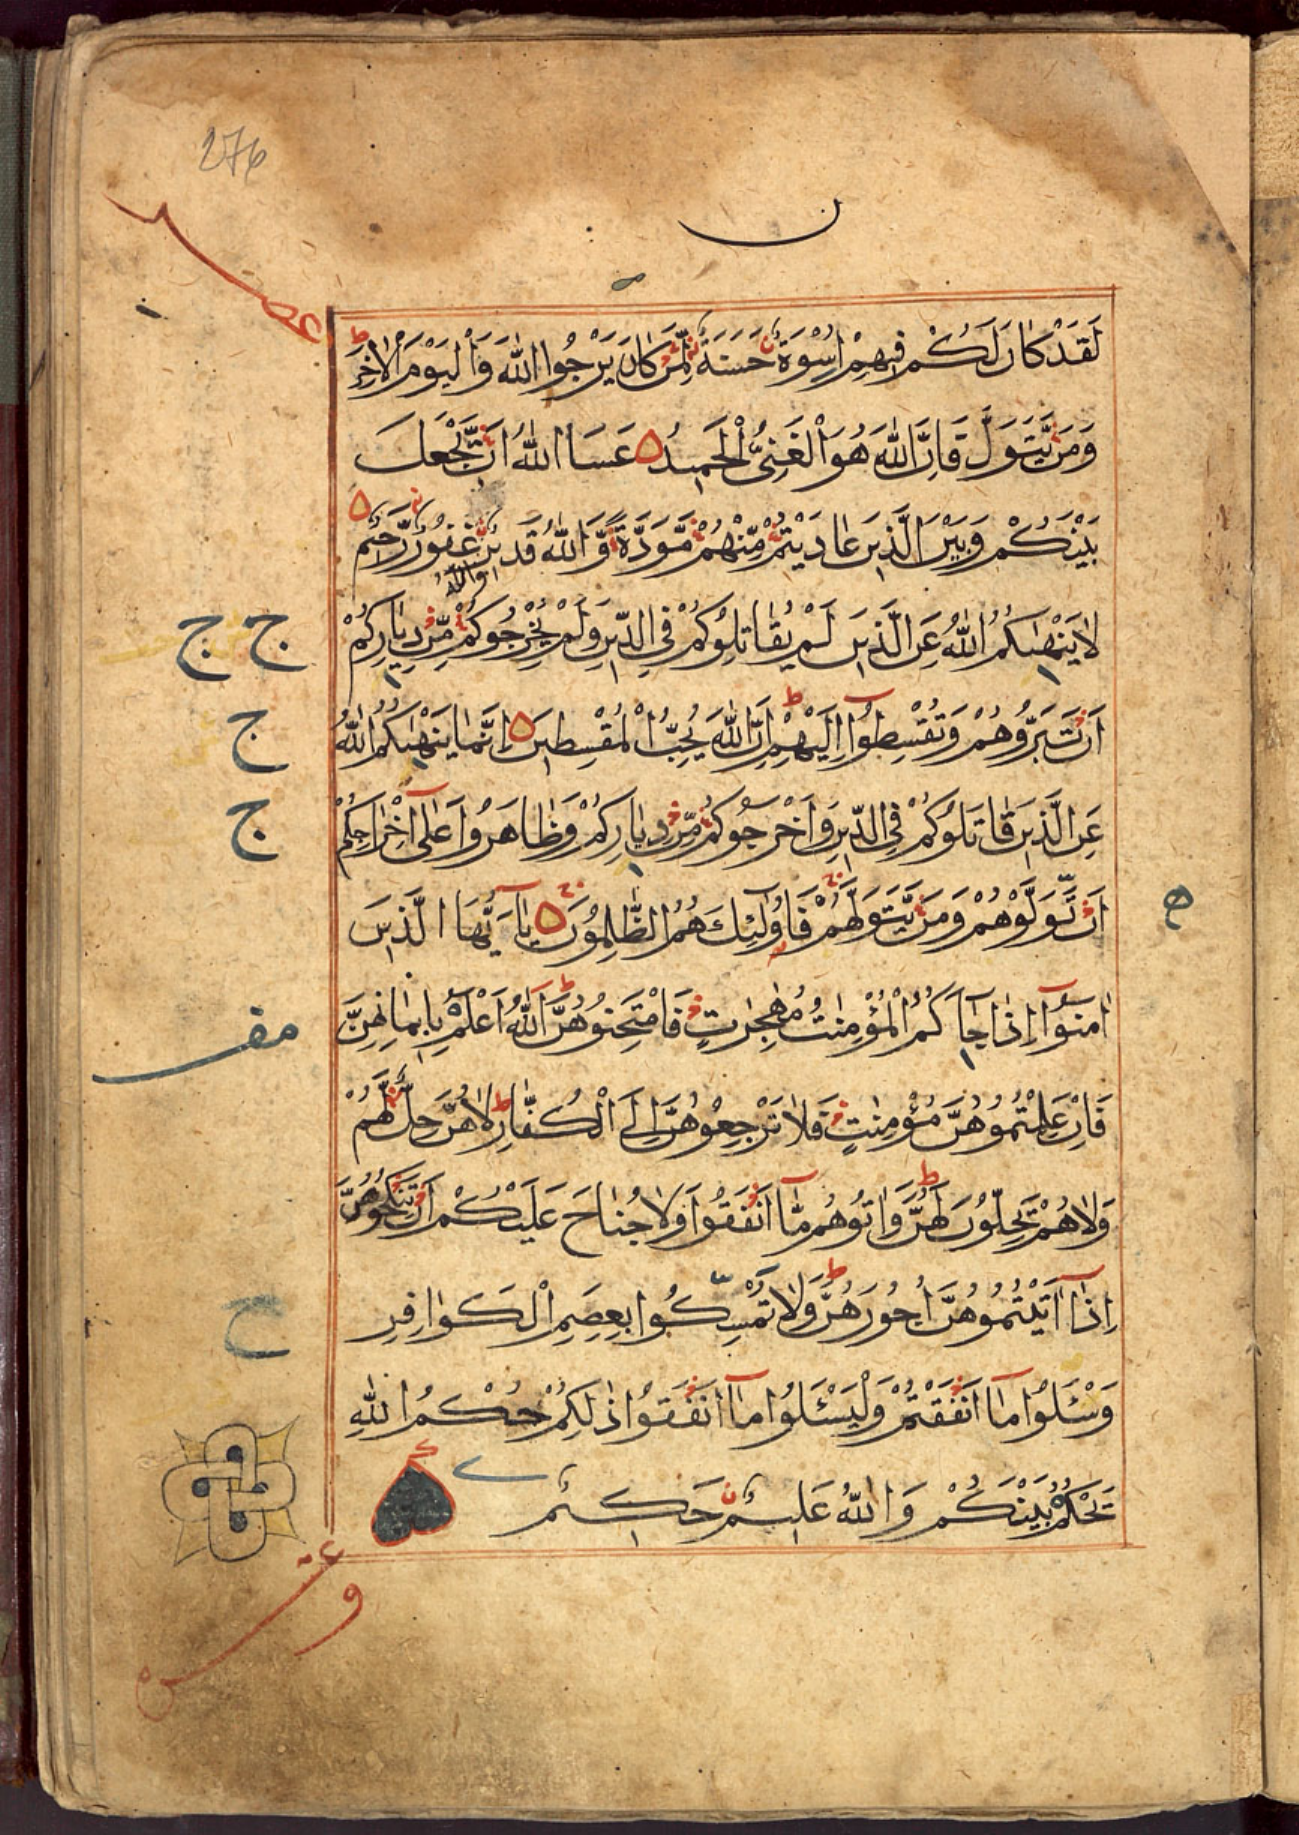 276
ن
لَقَدْ كَانَ لَكُمْ فِيهِمْ اُسْوَةٌ حَسَنَةٌ لِّمَن كَانَ يَرْجُوا اللّٰهَ وَالْيَوْمَ الْاٰخِرَ ط
وَمَن يَّتَوَلَّ فَاِنَّ اللّٰهَ هُوَ الْغَنِىُّ الْحَمِيدُ ۵ عَسَا اللّٰهُ اَن يَّجْعَلَ
بَيْنَكُمْ وَبَيْنَ الَّذِينَ عَادَيْتُمْ مِّنْهُمْ مَّوَدَّةً وَّاللّٰهُ قَدِيرٌ غَفُورٌ رَّحِيمٌ ۵
وَاللّٰهُ
لَا يَنْهٰىكُمُ اللّٰهُ عَنِ الَّذِينَ لَمْ يُقَاتِلُوكُمْ فِي الدِّينِ وَلَمْ يُخْرِجُوكُمْ مِّن دِيَارِكُمْ
ج ج
اَن تَبَرُّوهُمْ وَتُقْسِطُوٓا اِلَيْهِمْ ط اِنَّ اللّٰهَ يُحِبُّ الْمُقْسِطِينَ ۵ اِنَّمَا يَنْهٰىكُمُ اللّٰهُ
ج
عَنِ الَّذِينَ قَاتَلُوكُمْ فِي الدِّينِ وَاَخْرَجُوكُمْ مِّن دِيَارِكُمْ وَظَاهَرُوا عَلٰٓى اِخْرَاجِكُمْ
ج
اَن تَوَلَّوْهُمْ وَمَن يَّتَوَلَّهُمْ فَاُولٰٓئِكَ هُمُ الظّٰلِمُونَ ۵ يَآ اَيُّهَا الَّذِينَ
اٰمَنُوٓا اِذَا جَآءَكُمُ الْمُؤْمِنٰتُ مُهٰجِرٰتٍ فَامْتَحِنُوهُنَّ ط اَللّٰهُ اَعْلَمُ بِاِيمَانِهِنَّ
مف
فَاِنْ عَلِمْتُمُوهُنَّ مُؤْمِنٰتٍ فَلَا تَرْجِعُوهُنَّ اِلَى الْكُفَّارِ ط لَا هُنَّ حِلٌّ لَّهُمْ
وَلَا هُمْ يَحِلُّونَ لَهُنَّ ط وَاٰتُوهُم مَّآ اَنفَقُوا وَلَا جُنَاحَ عَلَيْكُمْ اَن تَنكِحُوهُنَّ
اِذَآ اٰتَيْتُمُوهُنَّ اُجُورَهُنَّ ط وَلَا تُمْسِكُوا بِعِصَمِ الْكَوَافِرِ
ح
وَسْـَٔلُوا مَآ اَنفَقْتُمْ وَلْيَسْـَٔلُوا مَآ اَنفَقُوا ذٰلِكُمْ حُكْمُ اللّٰهِ
يَحْكُمُ بَيْنَكُمْ وَاللّٰهُ عَلِيمٌ حَكِيمٌ